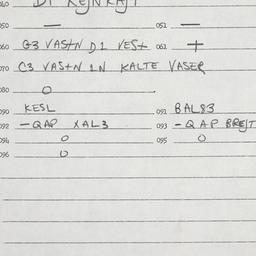 040 DI KEJNKAJI
050 — 051 —
060 G3 VASTN D1 VEST 061 +
070 C3 VASTN 1N KALTE VASER
080 O
090 KESL 091 BAL83
092 -QAP XAL3 093 -QAP BREJT
094 O 095 O
096 O